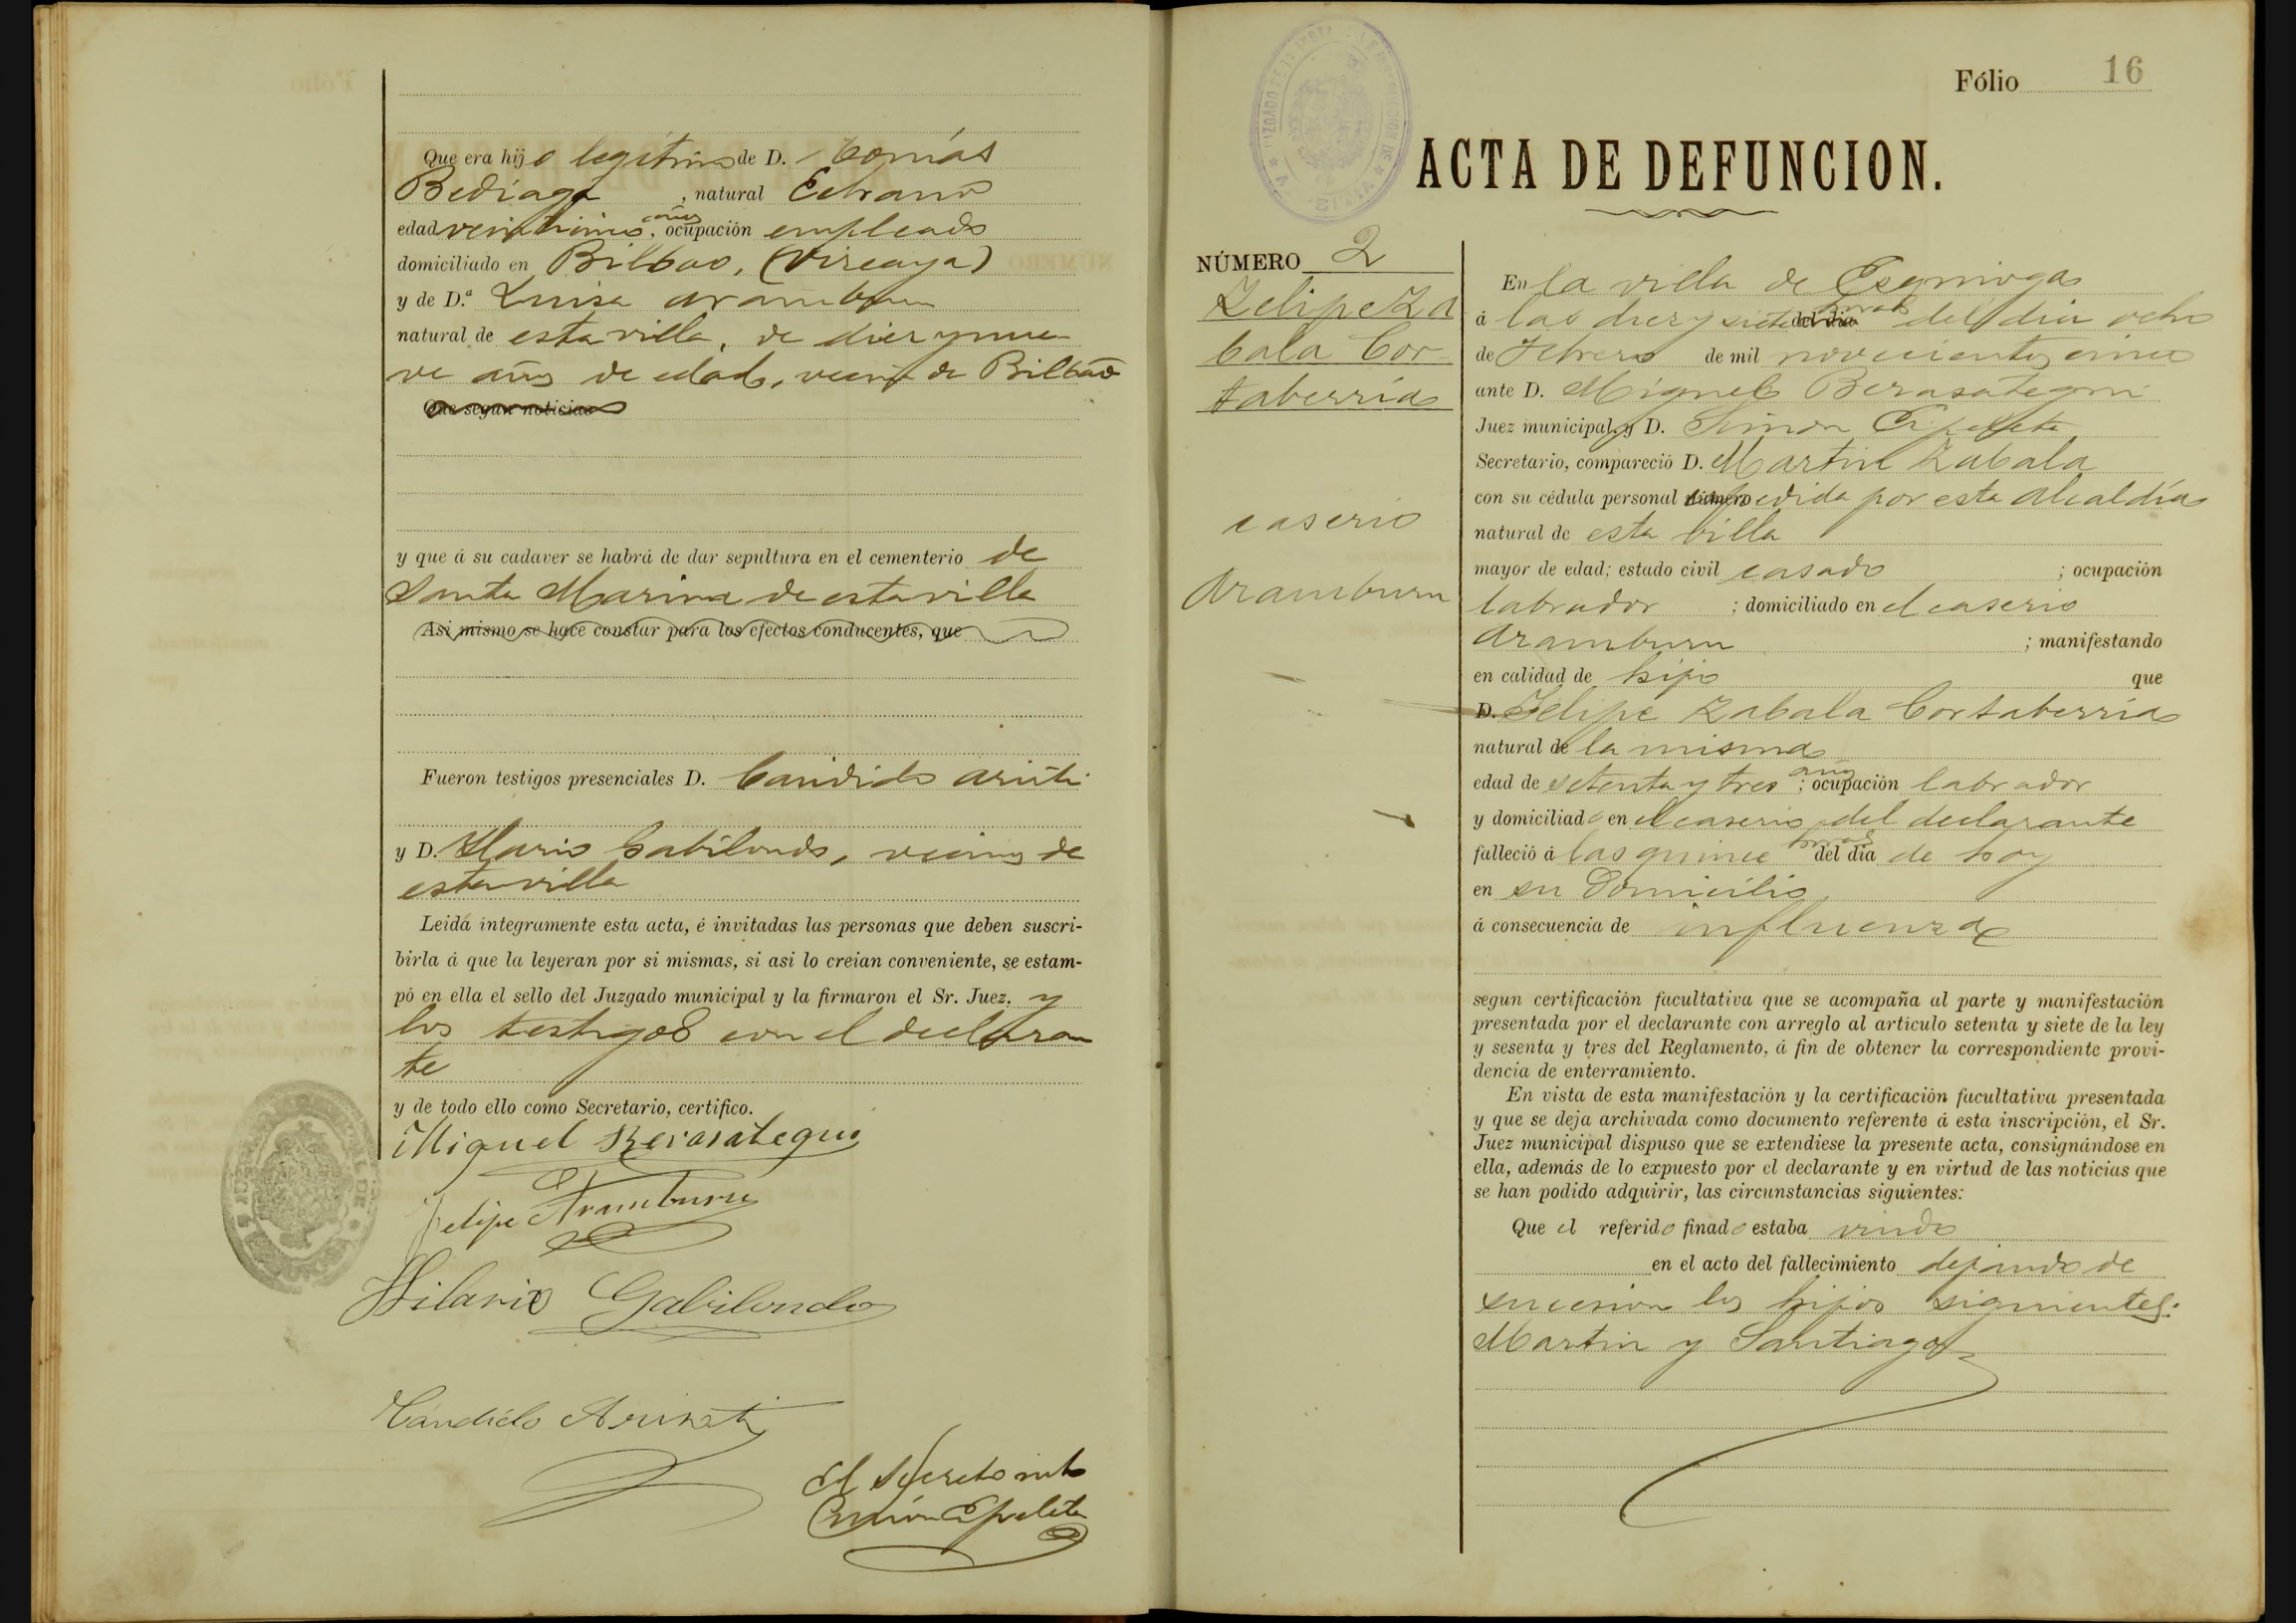 Que era hijo legítimo de D. Tomás
Bediaga, natural Echano
edad veinticinco años, ocupación empleado
domiciliado en Bilbao, (Vizcaya)
y de D.ª Luisa Aramburu
natural de esta villa, de diez y nue
ve años de edad, vecina de Bilbao
Que segun noticias
y que á su cadaver se habrá de dar sepultura en el cementerio de
Santa Marina de esta villa
Asi mismo se hace constar para los efectos conducentes, que
Fueron testigos presenciales D. Candido Arizti
y D. Ilario Gabilondo, vecinos de
esta villa
Leida integramente esta acta, é invitadas las personas que deben suscri-
birla á que la leyeran por si mismas, si asi lo creian conveniente, se estam-
pó en ella el sello del Juzgado municipal y la firmaron el Sr. Juez, y
los testigos con el declaran
te
y de todo ello como Secretario, certifico.
Miguel Berasategui
Felipe Aramburu
Hilario Gabilondo
Cándido Arizti
El Secretario
Simón Epelete
Fólio 16
ACTA DE DEFUNCION.
NÚMERO 2
Felipe Za
bala Cor-
taberría
caserio
Aramburu
En la villa de Eznioga
á las diez y siete horas del dia ocho
de Febrero de mil novecientos cinco
ante D. Miguel Berasategui
Juez municipal, y D. Simón Epelete
Secretario, compareció D. Martin Zabala
con su cédula personal número expedida por esta Alcaldía
natural de esta villa
mayor de edad; estado civil casado ; ocupación
labrador ; domiciliado en el caserio
Aramburu ; manifestando
en calidad de hijo que
D. Felipe Zabala Cortaberría
natural de la misma
edad de setenta y tres años; ocupación labrador
y domiciliado en el caserio del declarante
falleció á las quince horas del dia de hoy
en su domicilio
á consecuencia de influenza
segun certificación facultativa que se acompaña al parte y manifestación
presentada por el declarante con arreglo al articulo setenta y siete de la ley
y sesenta y tres del Reglamento, á fin de obtener la correspondiente provi-
dencia de enterramiento.
En vista de esta manifestación y la certificación facultativa presentada
y que se deja archivada como documento referente á esta inscripción, el Sr.
Juez municipal dispuso que se extendiese la presente acta, consignándose en
ella, además de lo expuesto por el declarante y en virtud de las noticias que
se han podido adquirir, las circunstancias siguientes:
Que el referido finado estaba viudo
en el acto del fallecimiento dejando de
sucesion los hijos siguientes:
Martin y Santiago